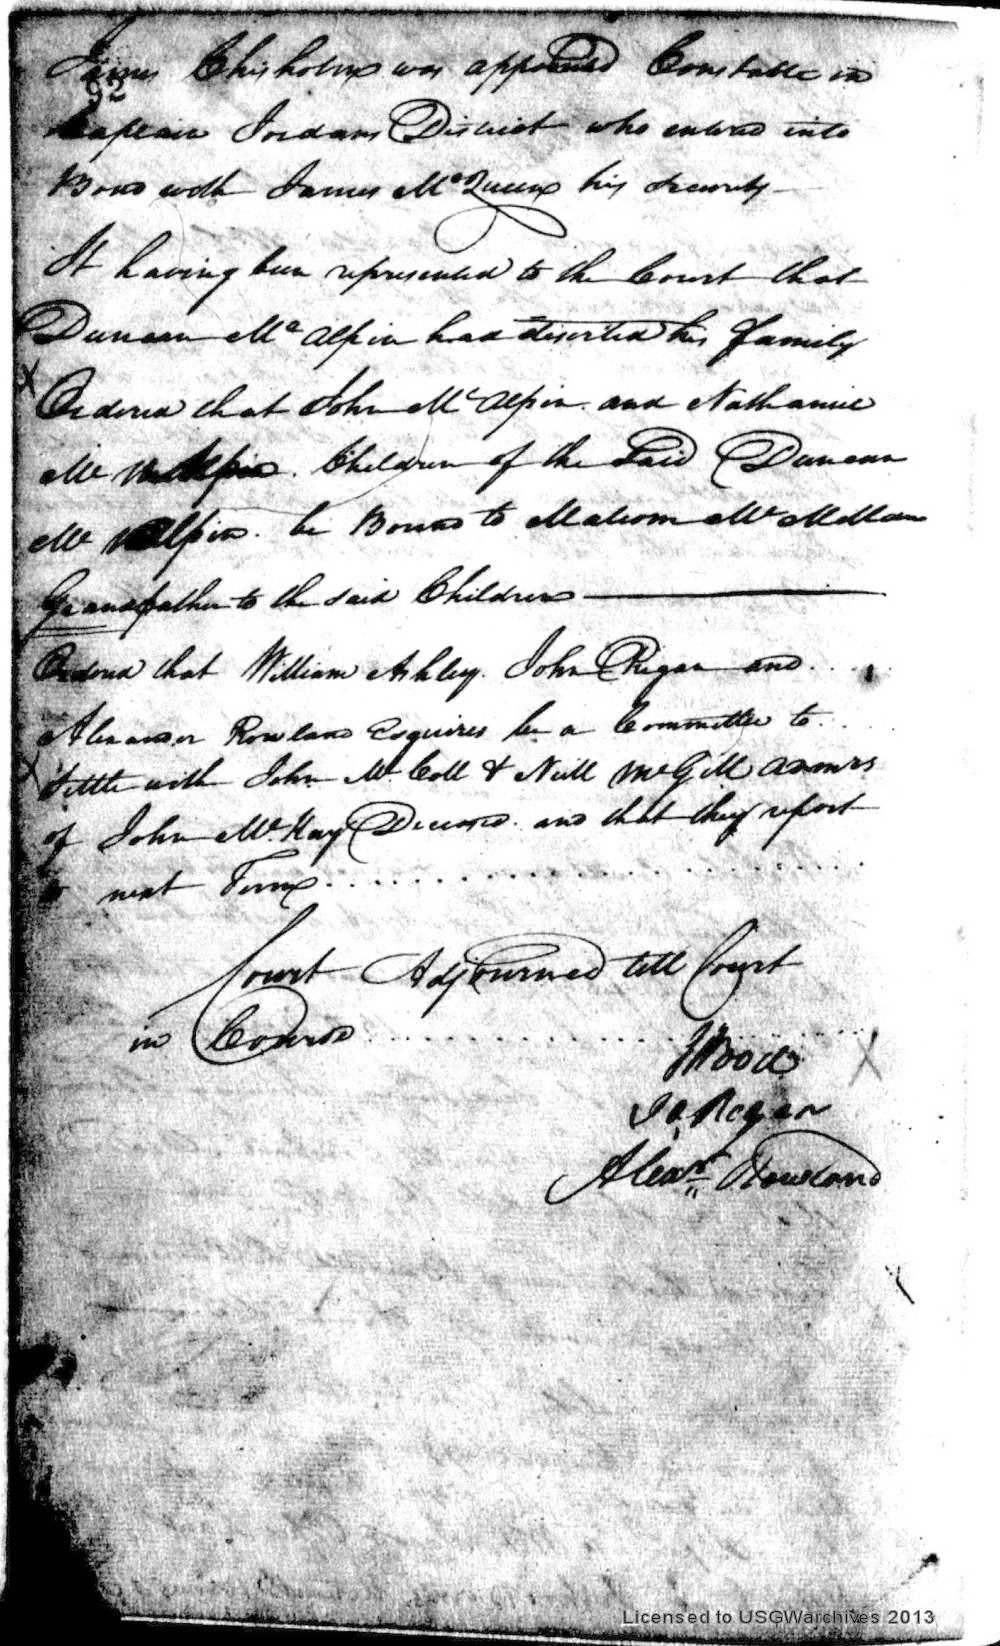 James Chisholm was appointed Constable in
92
Captain Jordans District who entered into
Bond with James McQueen his Security
It having been represented to the Court that
Duncan Mc Alpin had deserted his family
Ordered that John Mc Alpin and Nathaniel
Mc Alpin Children of the Said Duncan
Mc Alpin be Bound to Malcom Mc Millan
Grandfather to the said Children
Ordered that William Ashley John Regan and
Alexander Rowland Esquires be a Committee to
Settle with John Mc Coll & Neill McGill Admrs
of John Mc Kay Deceased and that they report
next Term
Court Adjourned till Court
in Course
J Wood
Jo. Regan
Alexr. Rowland
Licensed to USGWarchives 2013